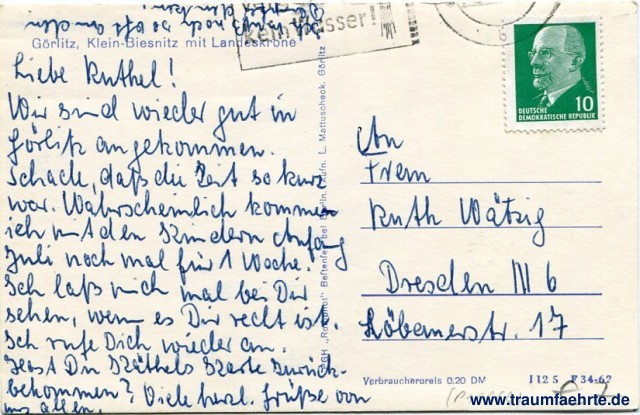 Görlitz, Klein-Biesnitz mit Landskrone
kein Wasser
Liebe Ruthel!
Wir sind wieder gut in
Görlitz angekommen.
Schade, daß die Zeit so kurz
war. Wahrscheinlich komme
ich mit den Kindern Anfang
Juli noch mal für 1 Woche.
Ich laß mich mal bei Dir
sehen, wenn es Dir recht ist.
Ich rufe Dich wieder an.
Hast Du Käthels Karte zurück-
bekommen? Viele herzl. Grüße von
uns allen.
DEUTSCHE
DEMOKRATISCHE REPUBLIK
10
An
Frau
Ruth Wätzig
Dresden III 6
Löbauerstr. 17
Aufn. L. Mattuscheck, Görlitz
Verbraucherpreis 0.20 DM
I 12 5 F 34-62
www.traumfaehrte.de